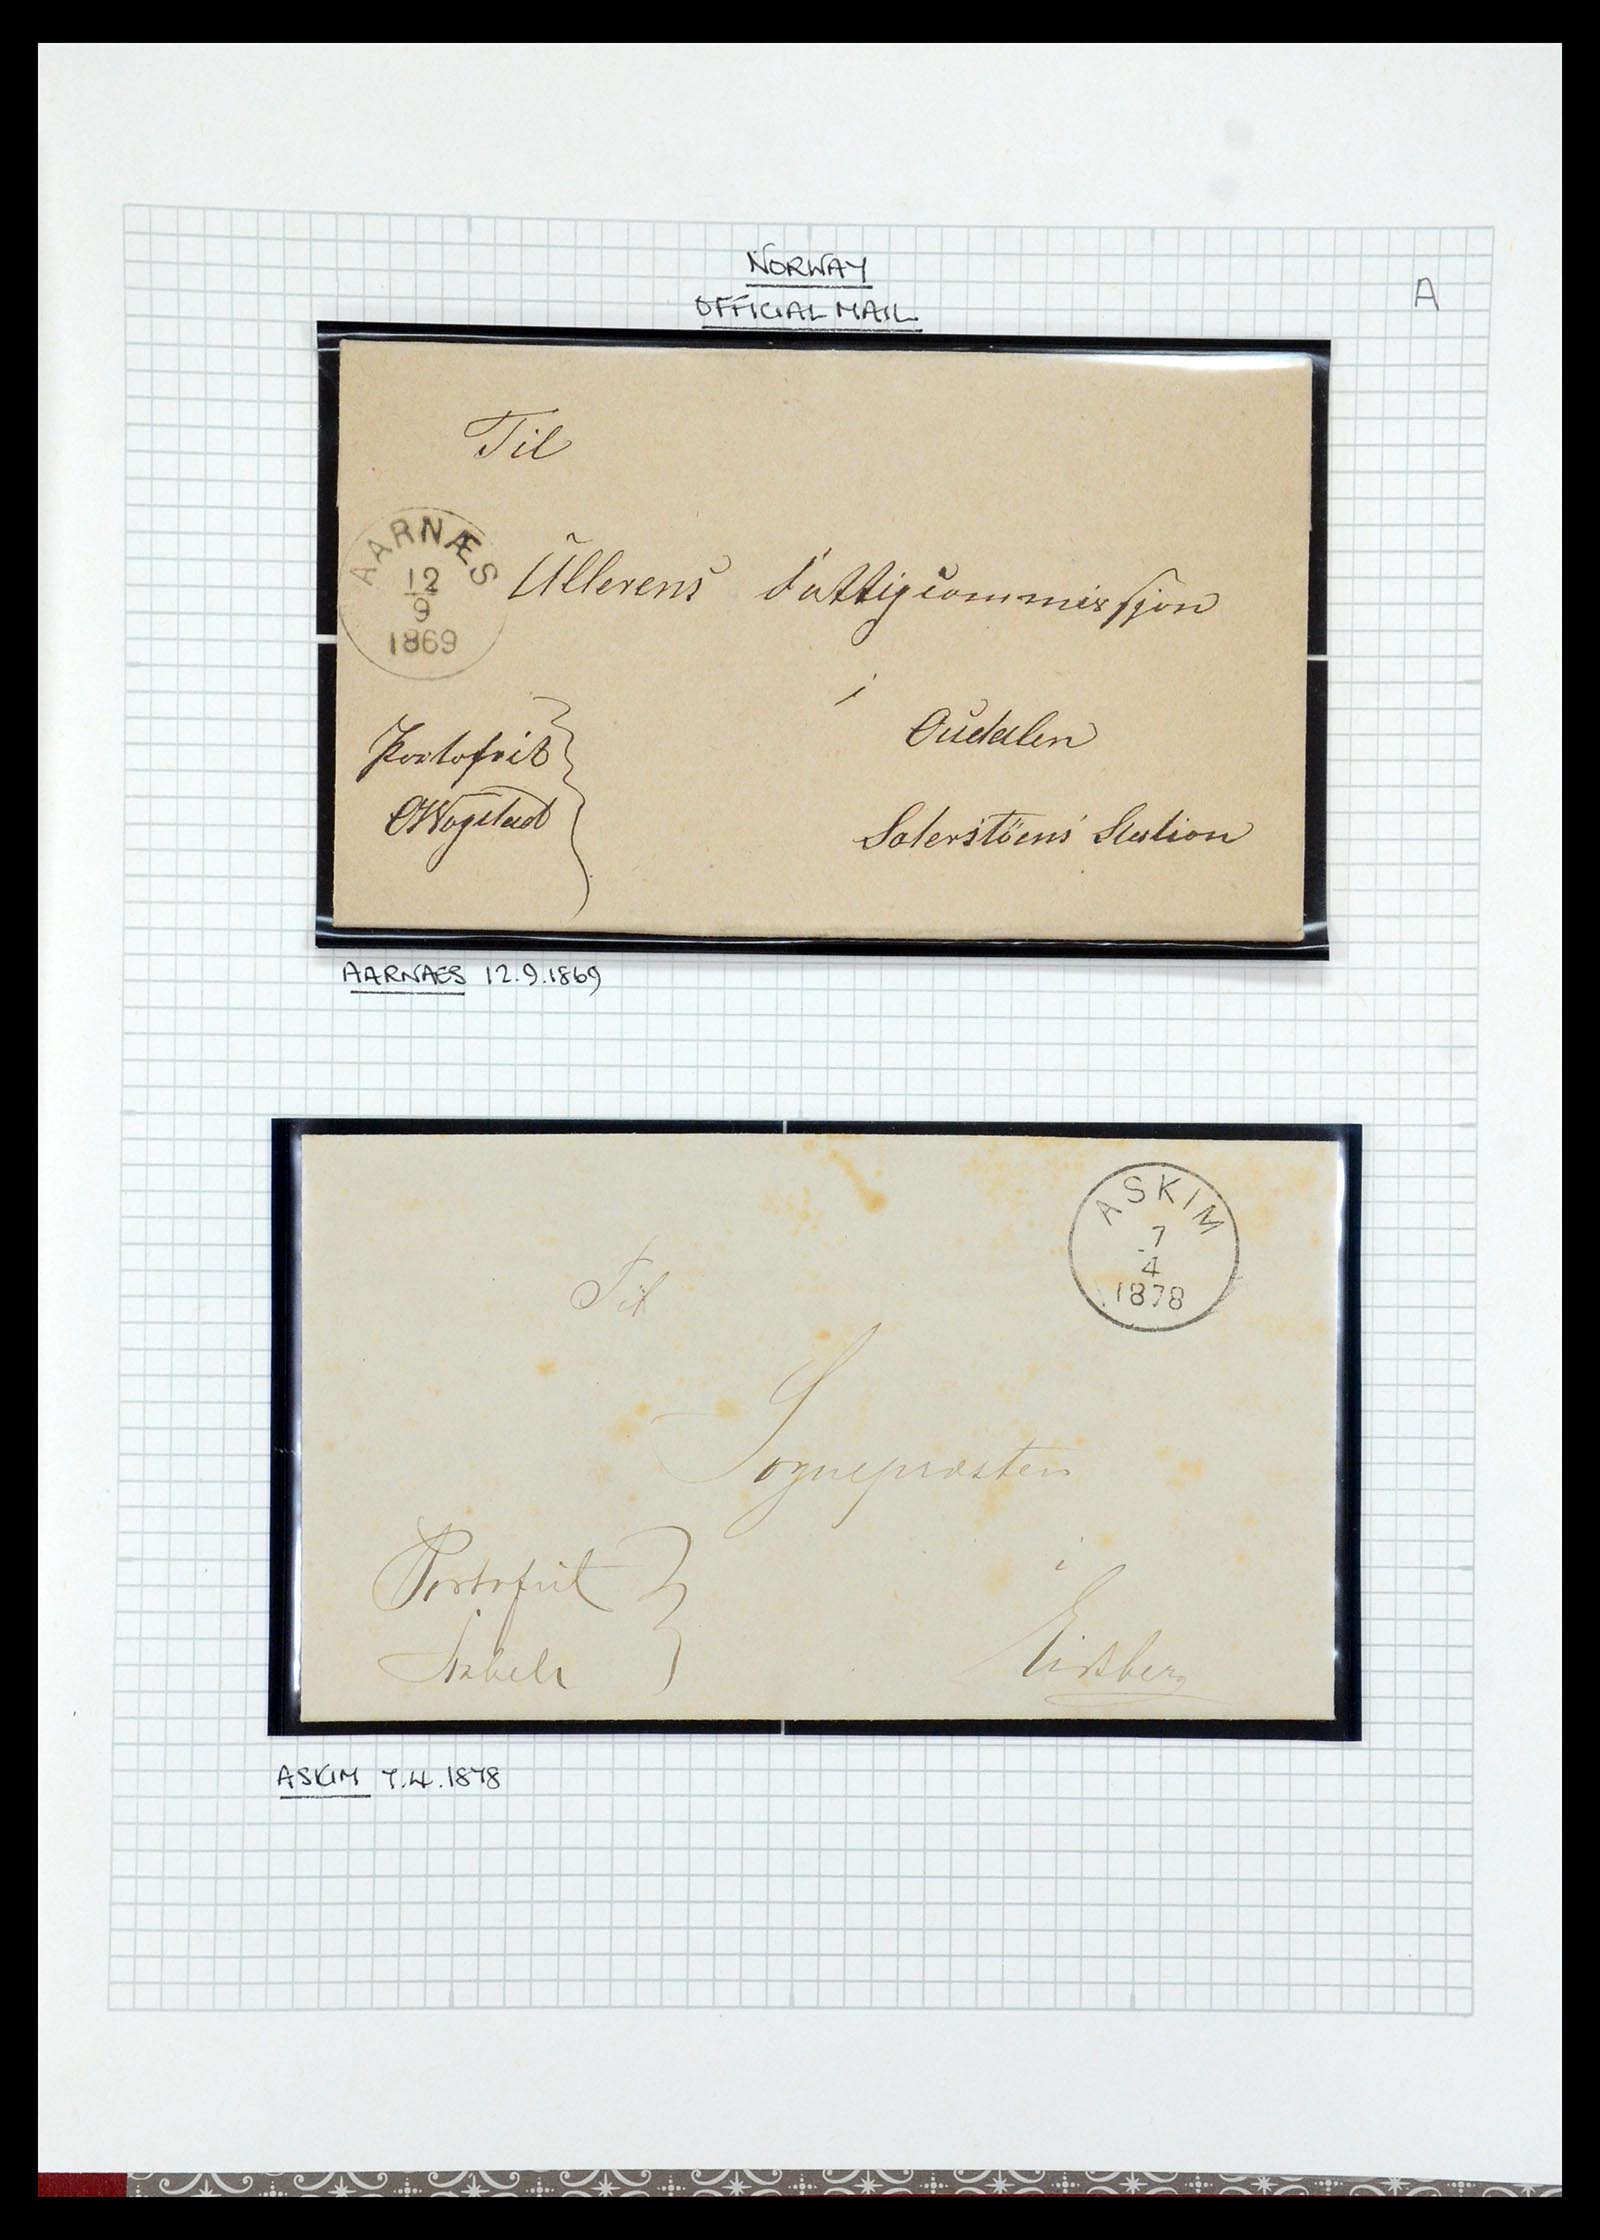 NORWAY
OFFICIAL MAIL
A
Til
AARNÆS
12
9
1869
Ullerens Fattigcommissjon
i
Oudalen
Portofrit
Wogstad
Saterstöens Station
AARNAES 12.9.1869
ASKIM
7
4
1878
Til
Sognepræsten
Portofrit
i
Eidsberg
ASKIM 7.4.1878